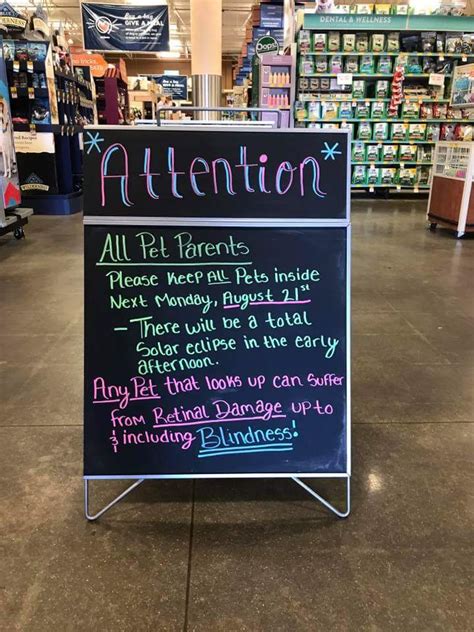 GIVE A MEAL
DENTAL & WELLNESS
Oops
*Attention*
All Pet Parents
Please Keep ALL Pets inside
Next Monday, August 21st
- There will be a total
Solar eclipse in the early
afternoon.
Any Pet that looks up can suffer
from Retinal Damage up to
& including Blindness!